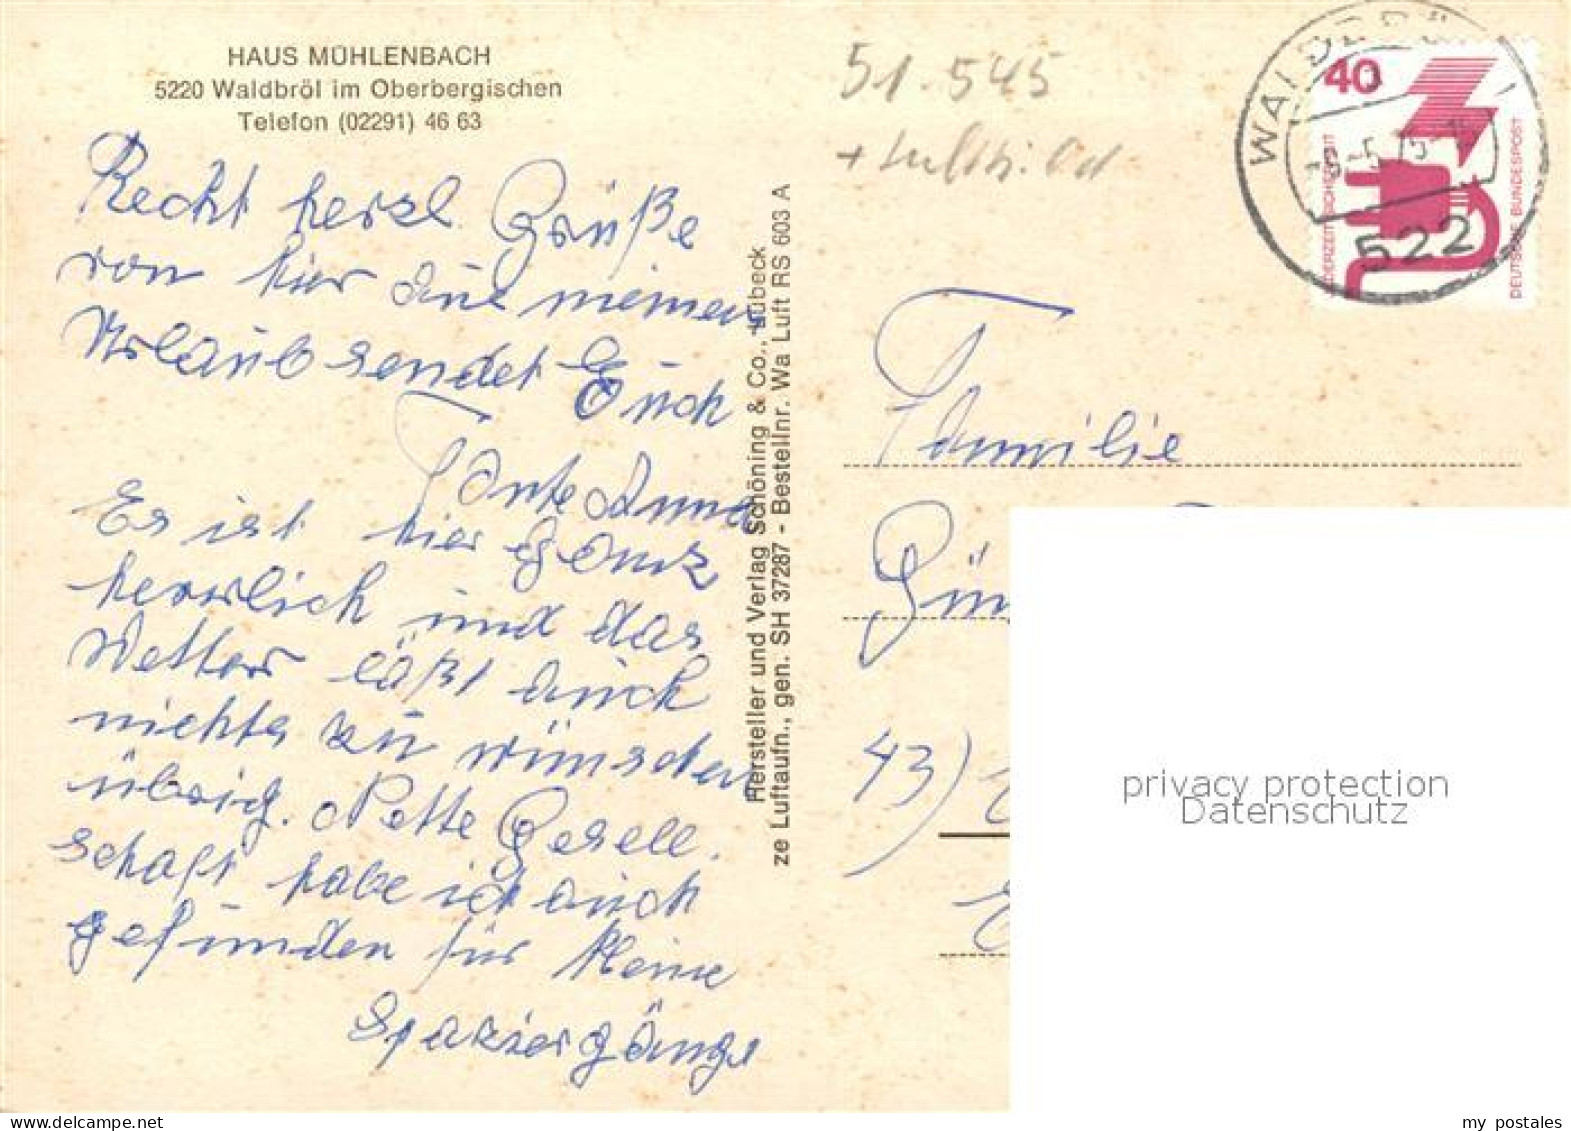 HAUS MÜHLENBACH
5220 Waldbröl im Oberbergischen
Telefon (02291) 46 63
Recht herzl. Grüße
von hier aus meinem
Urlaub sendet Euch
Tante Anna
Es ist hier ganz
herrlich und das
Wetter läßt auch
nichts zu wünschen
übrig. Nette Gesell.
schaft habe ich auch
gefunden für kleine
Spaziergänge
Hersteller und Verlag Schöning & Co., Lübeck
ze Luftaufn., gen. SH 37287 - Bestellnr. Wa Luft RS 603 A
51.545
WALDBRÖL
522
40
JEDERZEIT SICHERHEIT
DEUTSCHE BUNDESPOST
Familie
Gün
43)
privacy protection
Datenschutz
my postales